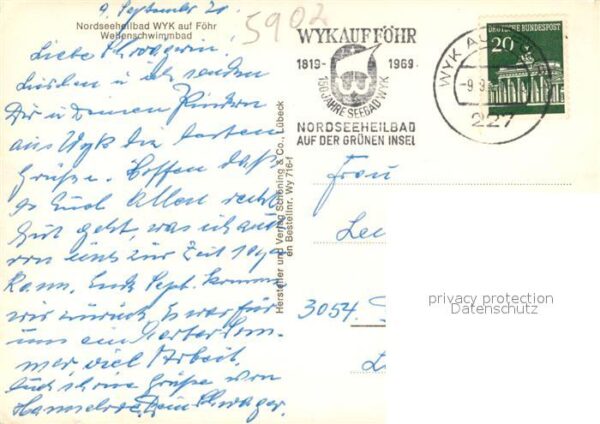 9. September
5902
Nordseeheilbad WYK auf Föhr
Wellenschwimmbad
Liebe Schwägerin!
und ich senden
Dir u. Deinen Kindern
aus Wyk die besten
Grüße. Hoffen daß
es Euch Allen recht
gut geht, was ich auch
von uns zur Zeit sagen
kann. Ende Sept. kommen
wir zurück. Es war für
uns ein Som-
mer, viel Arbeit.
Auch schöne Grüße von
Hannelore. Dein Schwager.
Hersteller und Verlag Schöning & Co., Lübeck
en Bestellnr. Wy 716-f
WYK AUF FÖHR
1819- 1969
150 JAHRE SEEBAD WYK
NORDSEEHEILBAD
AUF DER GRÜNEN INSEL
WYK AU
-9.9.
227
DEUTSCHE BUNDESPOST
20
Frau
3054.
privacy protection
Datenschutz